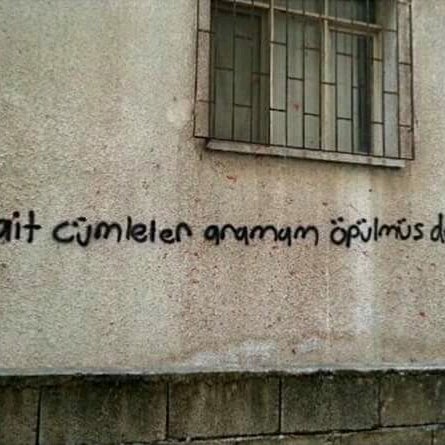 ait cümleler aramam öpülmüs d